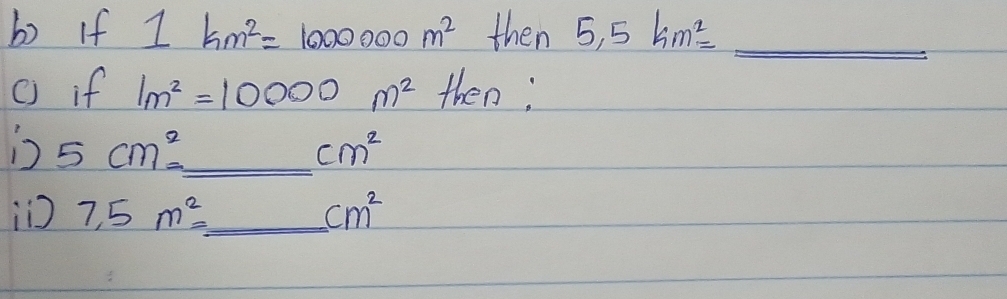 b) if 1 km²= 1000000 m² then 5,5 km²= ________
c) if 1m² =10000 m² then :
i) 5 cm²= ______ cm²
ii) 7,5 m²= ______ cm²